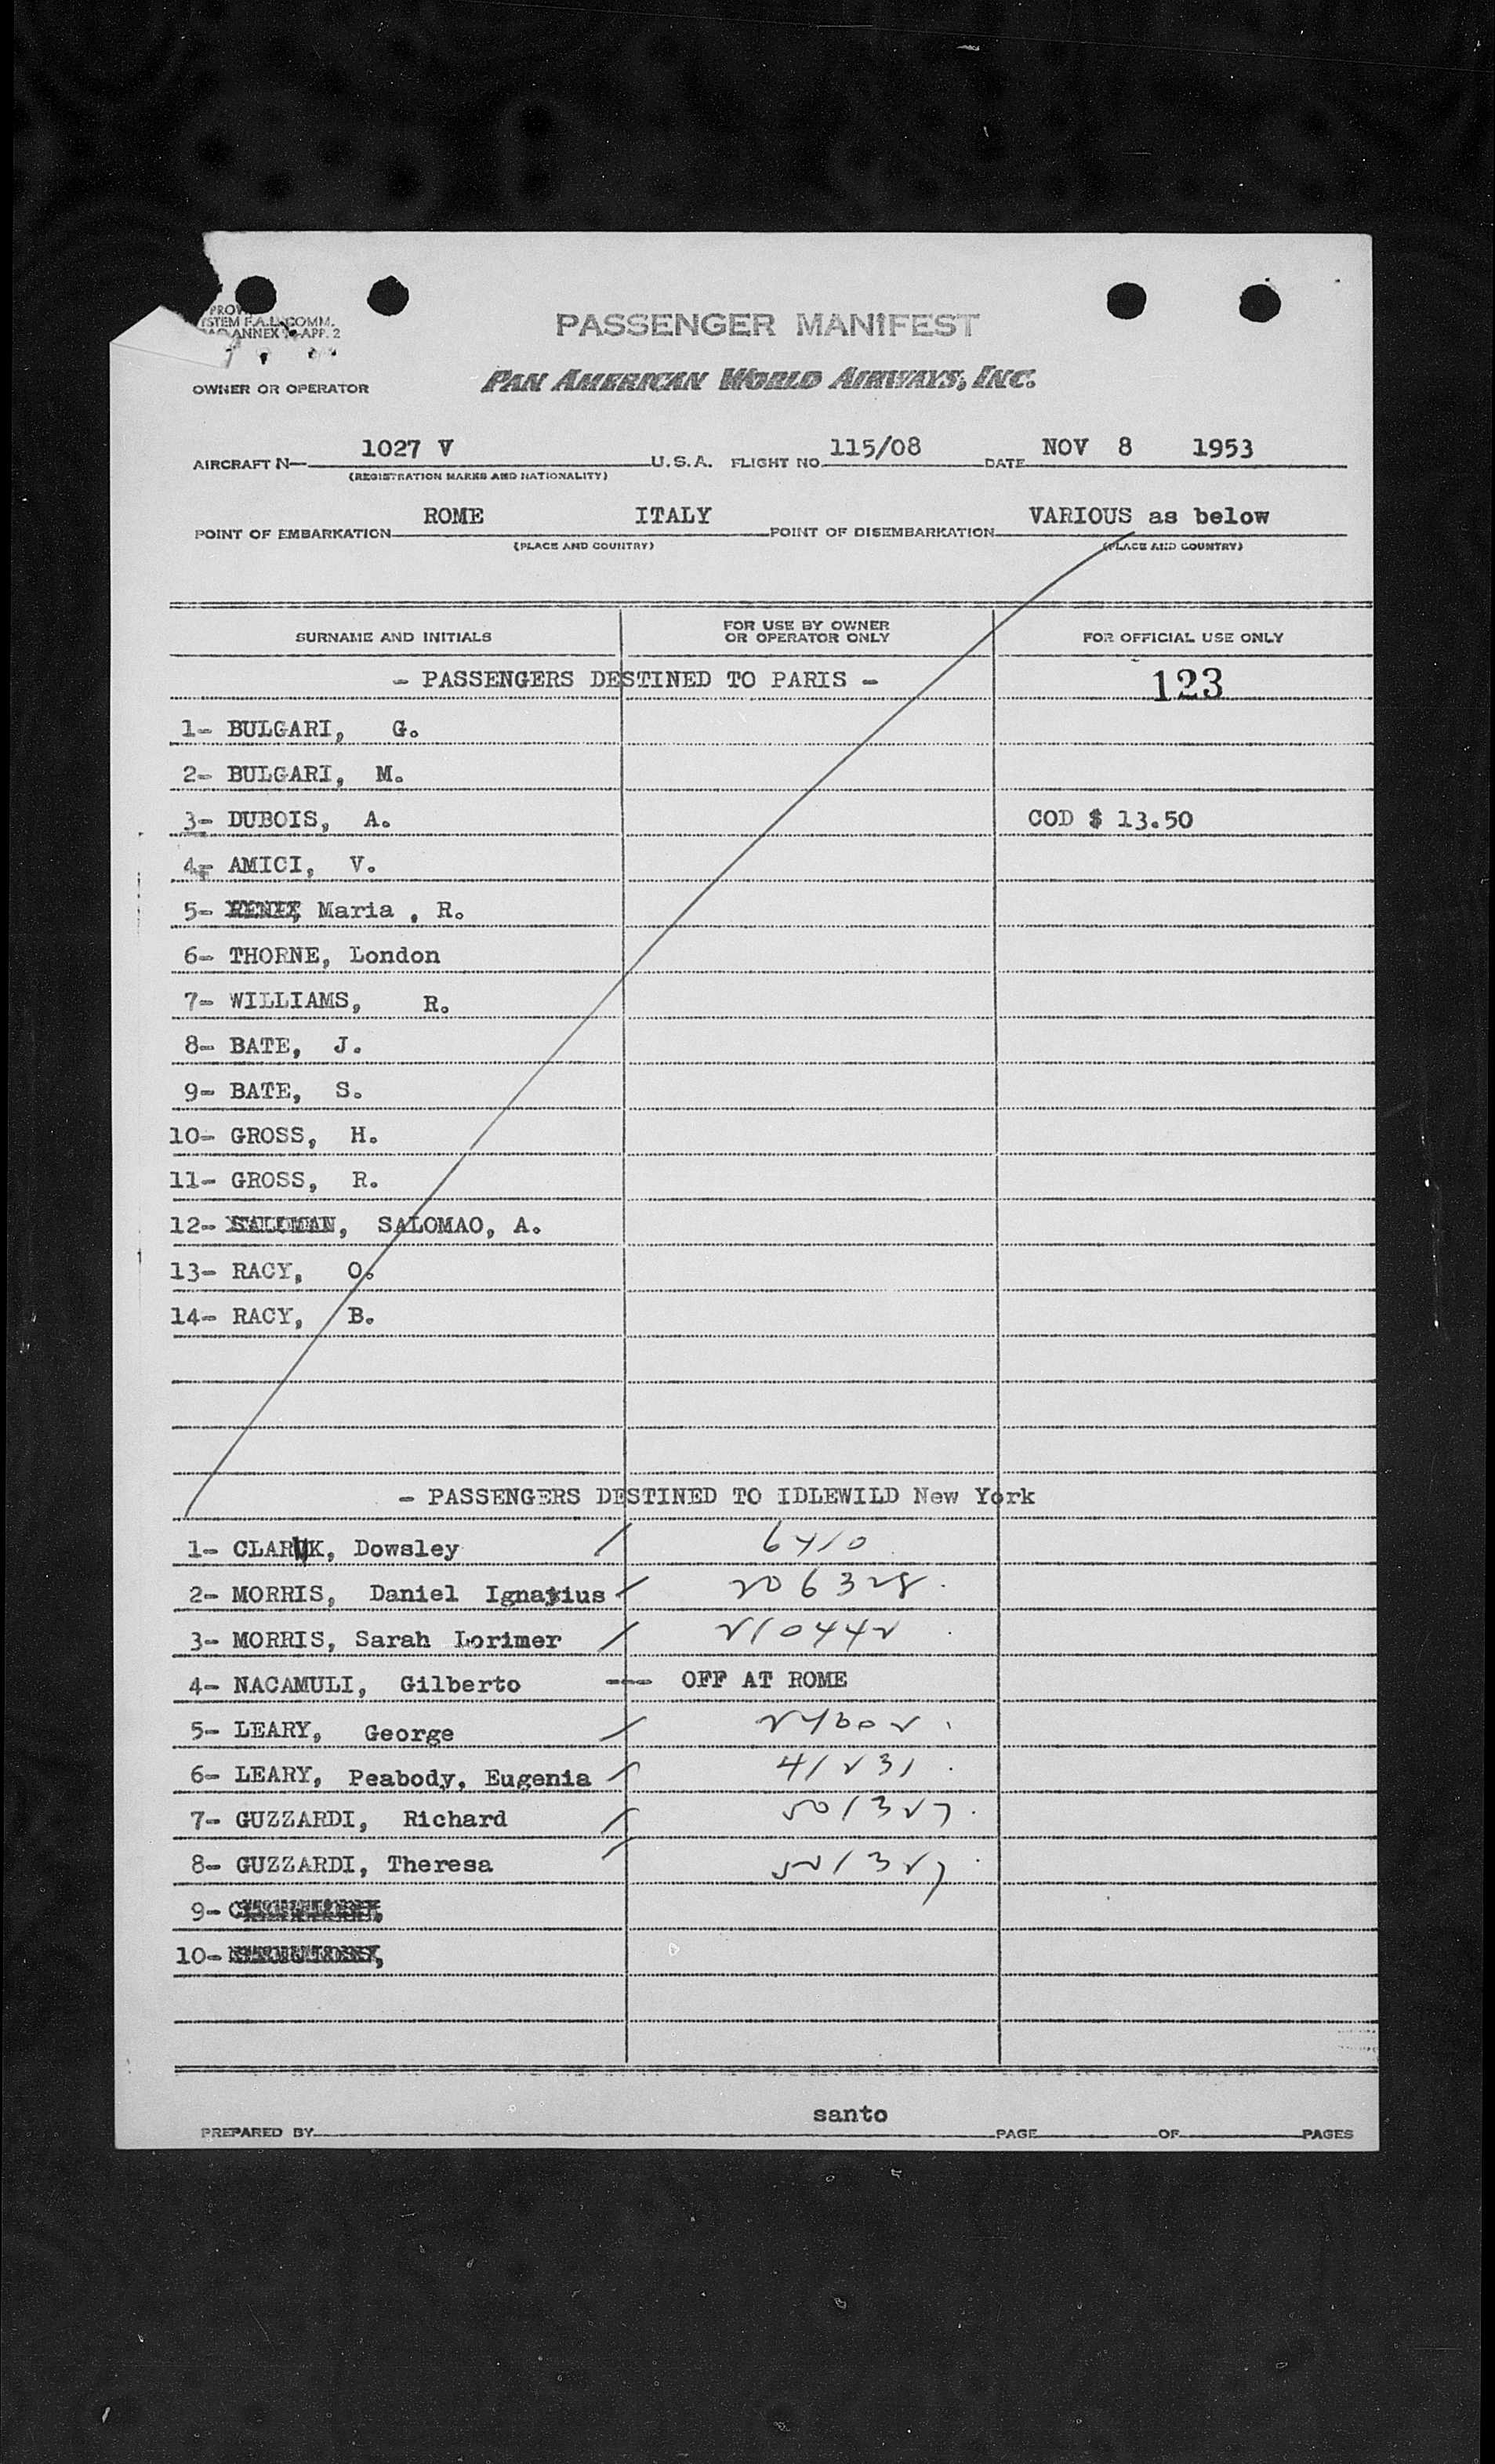 PASSENGER MANIFEST
STEM F.A.L. COMM.
ANNEX 9 APP. 2
OWNER OR OPERATOR PAN AMERICAN WORLD AIRWAYS, INC.
AIRCRAFT N— 1027 V U.S.A. FLIGHT NO. 115/08 DATE NOV 8 1953
(REGISTRATION MARKS AND NATIONALITY)
POINT OF EMBARKATION ROME ITALY POINT OF DISEMBARKATION VARIOUS as below
(PLACE AND COUNTRY) (PLACE AND COUNTRY)
SURNAME AND INITIALS FOR USE BY OWNER OR OPERATOR ONLY FOR OFFICIAL USE ONLY
- PASSENGERS DESTINED TO PARIS - 123
1- BULGARI, G.
2- BULGARI, M.
3- DUBOIS, A. COD $ 13.50
4- AMICI, V.
5- Maria , R.
6- THORNE, London
7- WILLIAMS, R.
8- BATE, J.
9- BATE, S.
10- GROSS, H.
11- GROSS, R.
12- SALOMAO, A.
13- RACY, O.
14- RACY, B.
- PASSENGERS DESTINED TO IDLEWILD New York
1- CLARK, Dowsley / 6410
2- MORRIS, Daniel Ignatius / 206328.
3- MORRIS, Sarah Lorimer / 210442
4- NACAMULI, Gilberto --- OFF AT ROME
5- LEARY, George /
6- LEARY, Peabody, Eugenia / 41231
7- GUZZARDI, Richard / 501327.
8- GUZZARDI, Theresa /
9-
10-
santo
PREPARED BY PAGE OF PAGES